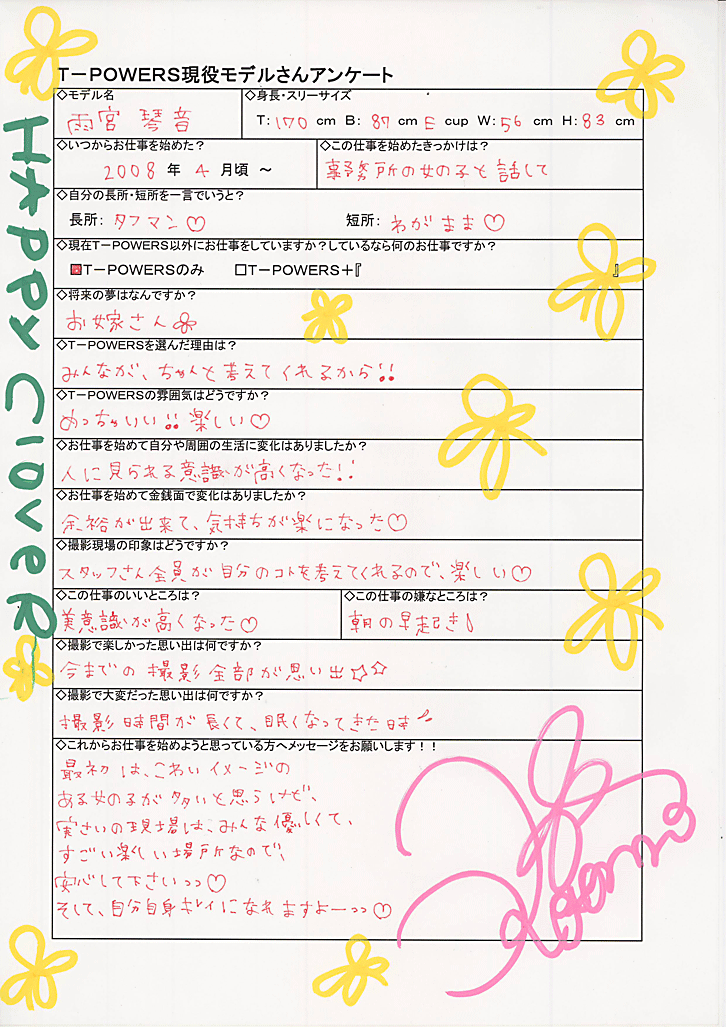 T-POWERS現役モデルさんアンケート
◇モデル名
雨宮 琴音
◇身長・スリーサイズ
T:170 cm B:87 cm E cup W:56 cm H:83 cm
◇いつからお仕事を始めた?
2008 年 4 月頃 ~
◇この仕事を始めたきっかけは?
事務所の女の子と話して
◇自分の長所・短所を一言でいうと?
長所: タフマン♡ 短所: わがまま♡
◇現在T-POWERS以外にお仕事をしていますか?しているなら何のお仕事ですか?
■T-POWERSのみ □T-POWERS+『 』
◇将来の夢はなんですか?
お嫁さん
◇T-POWERSを選んだ理由は?
みんなが、ちゃんと考えてくれるから!!
◇T-POWERSの雰囲気はどうですか?
めっちゃいい!!楽しい♡
◇お仕事を始めて自分や周囲の生活に変化はありましたか?
人に見られる意識が高くなった!!
◇お仕事を始めて金銭面で変化はありましたか?
余裕が出来て、気持ちが楽になった♡
◇撮影現場の印象はどうですか?
スタッフさん全員が自分のコトを考えてくれるので、楽しい♡
◇この仕事のいいところは?
美意識が高くなった♡
◇この仕事の嫌なところは?
朝の早起き
◇撮影で楽しかった思い出は何ですか?
今までの撮影全部が思い出☆☆
◇撮影で大変だった思い出は何ですか?
撮影時間が長くて、眠くなってきた時
◇これからお仕事を始めようと思っている方へメッセージをお願いします!!
最初は、こわいイメージの
ある女の子が多いと思うけど、
実さいの現場は、みんな優しくて、
すごい楽しい場所なので、
安心して下さいっっ♡
そして、自分自身キレイになれますよーっっ♡
HAPPY ClOVER